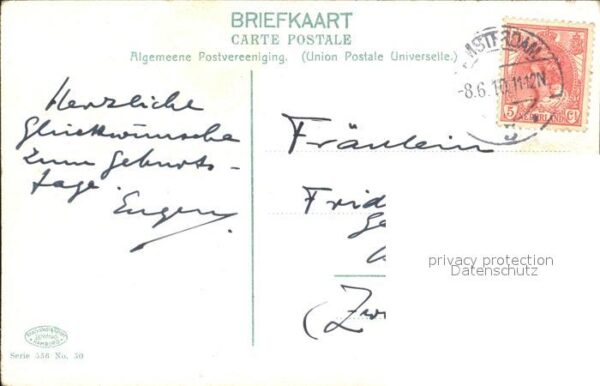 BRIEFKAART
CARTE POSTALE
Algemeene Postvereeniging. (Union Postale Universelle.)
AMSTERDAM
-8.6.10.11-12N
5 NEDERLAND Ct
Herzliche
Glückwünsche
zum Geburts-
tage
Eugen
Fräulein
Frid
Ge
privacy protection
Datenschutz
(Zw
HAMBURG
Serie 556 No. 50